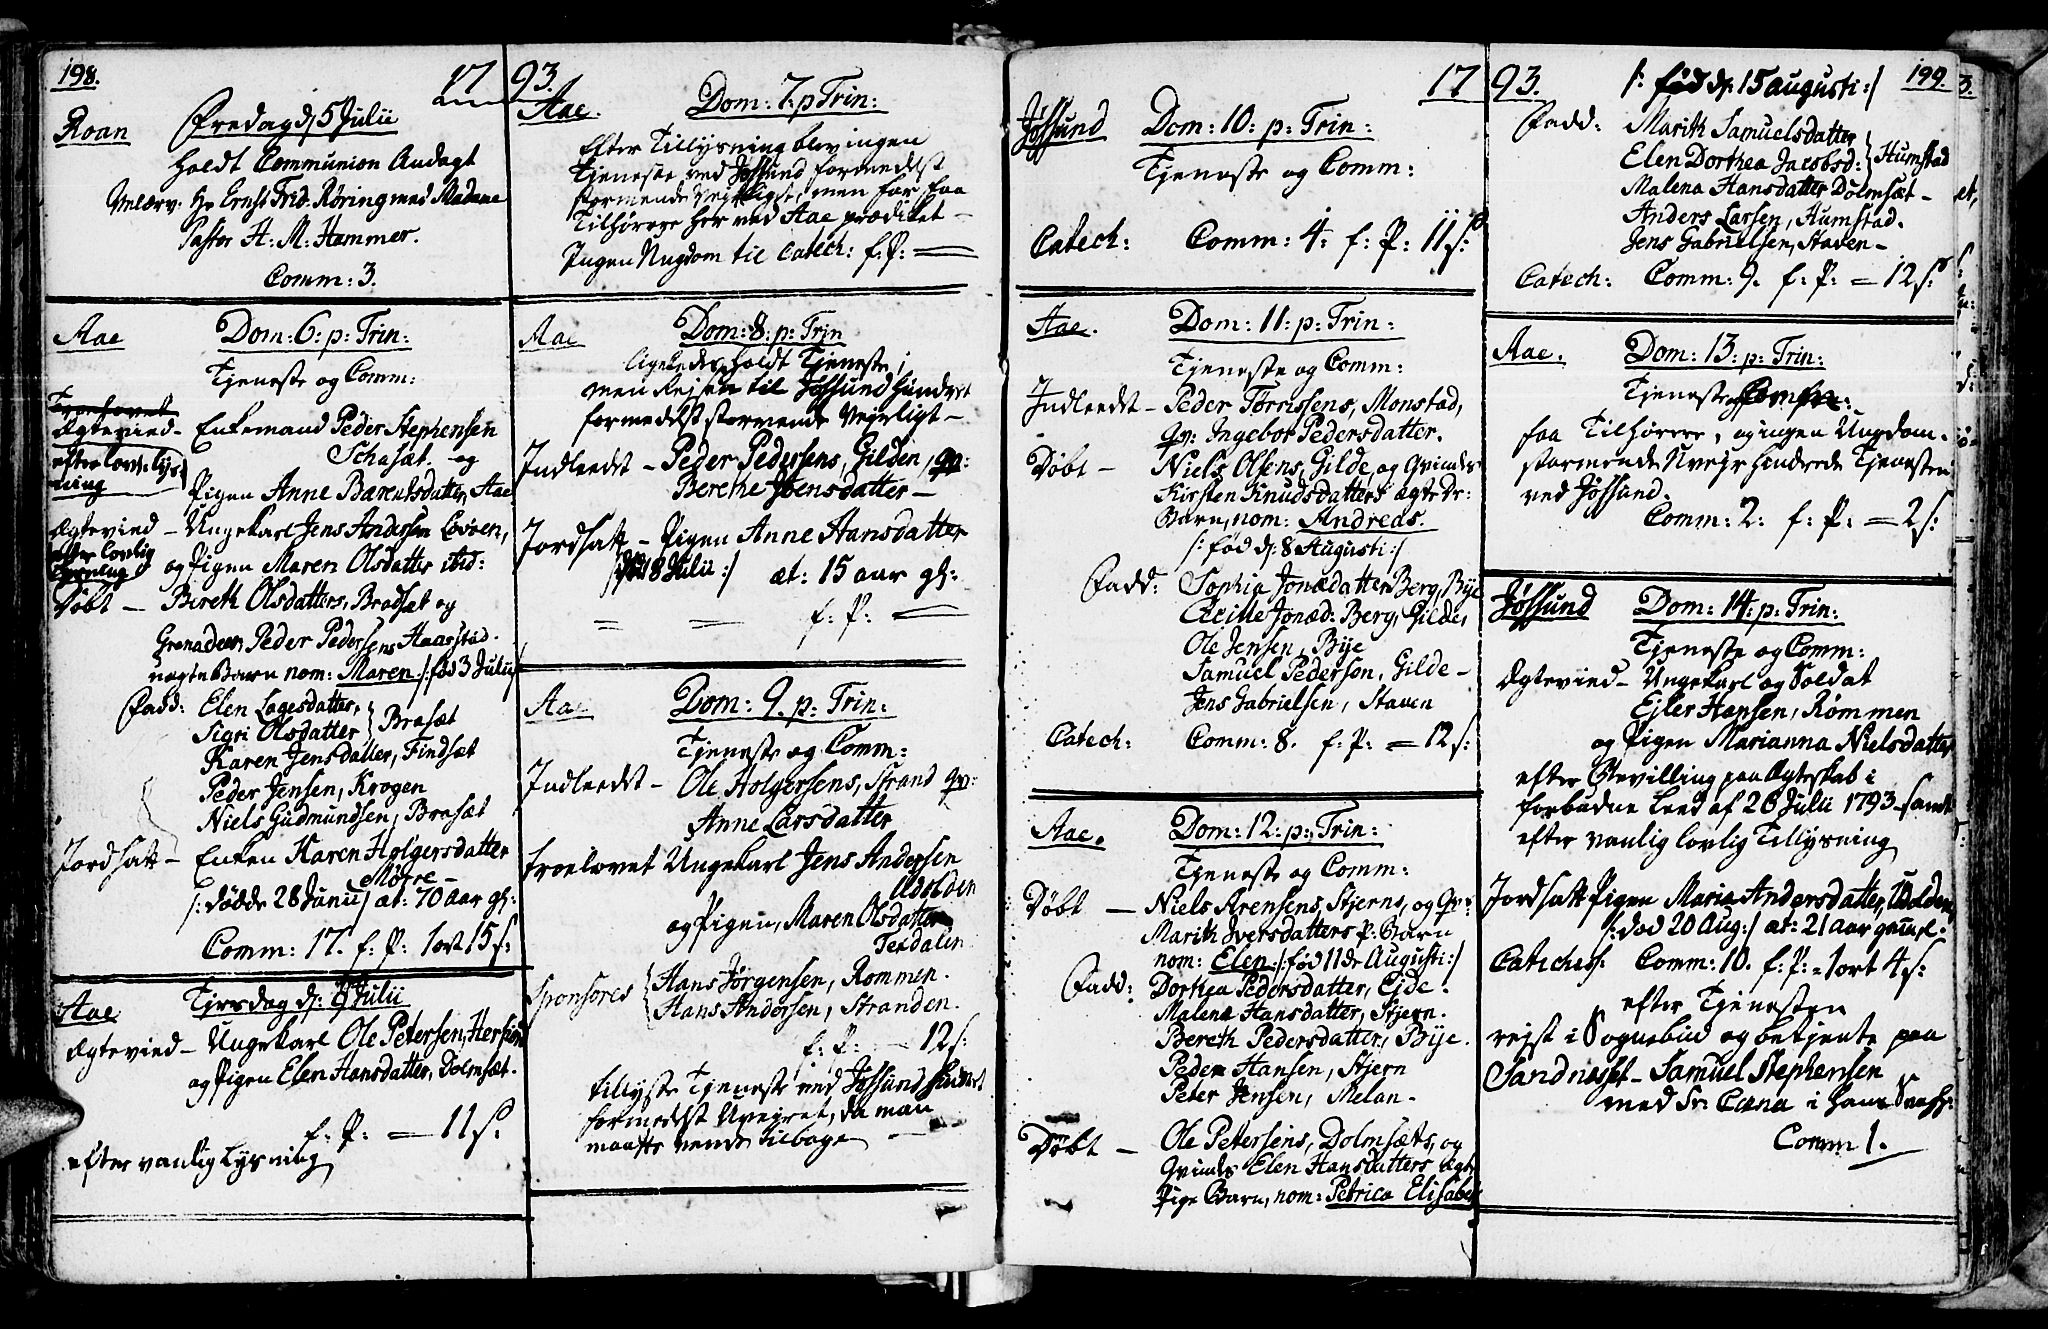 198.
17 93.
Roan
Fredag d: 5 Julii
holdt Communion Andagt
Velærv: Hr Ernst Frid: Røring med Madame
Pastor H: M: Hammer.
Comm: 3.
Aae
Dom: 6: p: Trin:
Tjeneste og Comm:
Trolovet
Ægtevied - Enkemand Peder Stephensen
Schasæt. og
efter lovl: lys-
ning
Pigen Anne Barentsdatter, Aae
Ægtevied - Ungekarl Jens Andersen Løvøen,
efter lovlig
og Pigen Maren Olsdatter ibid:
Døbt - Bereth Olsdatters, Brasæt og
Grenadeer, Peder Pedersens Haarstad.
uægte Barn nom: Maren /: fød 3 Julii
Fadd: Elen Lagesdatter,
Sigri Olsdatter } Brasæt
Karen Jensdatter, Findsæt
Peder Jensen, Krogen
Niels Gudmundsen, Brasæt
Jordsatt - Enken Karen Holgersdatter
Mørre -
/: døde 28 Junii/ æt: 70 aar gl:
Comm: 17. f: P: 1 ort 15 s:
Aae
Tirsdag d: 9 Julii
Ægtevied - Ungekarl Ole Petersen,
og Pigen Elen Hansdatter, Dolmsæt.
f: P: = 11 s.
efter vanlig lysning
Aae.
Dom: 7: p Trin:
Efter Tillysning blev ingen
Tjeneste ved Jøssund formedelst
stormende Vejrligt, men for faa
Tilhørere her ved Aae prædiket -
Ingen Ungdom til Catech: f: P: =
Aae
Dom: 8: p: Trin
ligeledes holdt Tjeneste,
men Rejsen til Jøssund hindret
formedelst stormende Vejrligt -
Indleedt - Peder Pedersens, Gilden, qv:
Berethe Joensdatter -
Jordsatt - Pigen Anne Hansdatter
18 Julii :/ æt: 15 aar gl:
f: P: =
Aae
Dom: 9. p: Trin:
Tjeneste og Comm:
Indleedt - Ole Holgersens, Strand qv:
Anne Larsdatter
Troelovet Ungekarl Jens Andersen
Udolden
og Pigen, Maren Olsdatter
Terdalen
Sponsores { Hans Jørgensen, Rømmen.
Hans Andersen, Stranden.
f: P: - 12 s:
tillyste Tjeneste ved Jøssund hindret
formedelst Uvejret, da man
maatte vende tilbage -
17 93.
199.
Jøssund
Dom: 10: p: Trin:
Tjeneste og Comm:
Catech: Comm: 4: f: P: 11 s:
Aae.
Dom: 11: p: Trin:
Tjeneste og Comm:
Indleedt - Peder Torrissens, Monstad,
qv: Ingebor Pedersdatter.
Døbt - Niels Olsens, Gilde, og Qvindes
Kirsten Knudsdatters ægte Dr:
Barn, nom: Andreas.
/: fød d: 8 Augusti :/
Fadd: Sophia Jonædatter Berg, Bye
Cecille Jonæd: Berg, Gilde,
Ole Jensen, Bye
Samuel Pedersen, Gilde -
Jens Gabrielsen, Staven
Catech: Comm: 8. f: P: = 12 s:
Aae.
Dom: 12: p: Trin:
Tjeneste og Comm:
Døbt - Niels Arensens, Stjern, og qv:
Marith Iversdatters P: Barn
nom: Elen: /: fød 11 de Augusti :/
Fadd: Dorthea Pedersdatter, Eide.
Malena Hansdatter, Stjern.
Bereth Pedersdatter, Bye.
Peder Hansen, Stjern
Peter Jensen, Melan.
Døbt - Ole Petersens, Dolmsæts, og
Qvindes Elen Hansdatters ægte
Pige Barn, nom: Petrica Elisabeth
/: fød d: 15 augusti :/
Fadd: Marith Samuelsdatter
Elen Dorthea Jacobsd: } Humstad
Malena Hansdatter Dolmsæt -
Anders Larsen, Humstad.
Jens Gabrielsen, Staven -
Catech: Comm: 9. f: P: = 12 s:
Aae.
Dom: 13: p: Trin:
Tjeneste
faa Tilhørere, og ingen Ungdom.
stormende Uvejr hindrede Tjenesten
ved Jøssund.
Comm: 2: f: P: = 2 s:
Jøssund
Dom: 14: p: Trin:
Tjeneste og Comm:
Ægtevied - Ungekarl og Soldat
Ejler Hansen, Rømmen
og Pigen Marianna Nielsdatter
efter Bevilling paa Ægteskab i
forbudne Leed af 26 Julii 1793 - samt
efter vanlig lovlig Tillysning
Jordsatt Pigen Maria Andersdatter, Udolden,
/: død 20 Aug :/ æt: 21 aar gammel.
Cateches: Comm: 10. f: P: = 1 ort 4 s:
efter Tjenesten
rejst i Sognebud og betjente paa
Sandnesset - Samuel Stephensen
med Sr: Cæna i hans
Comm 1.